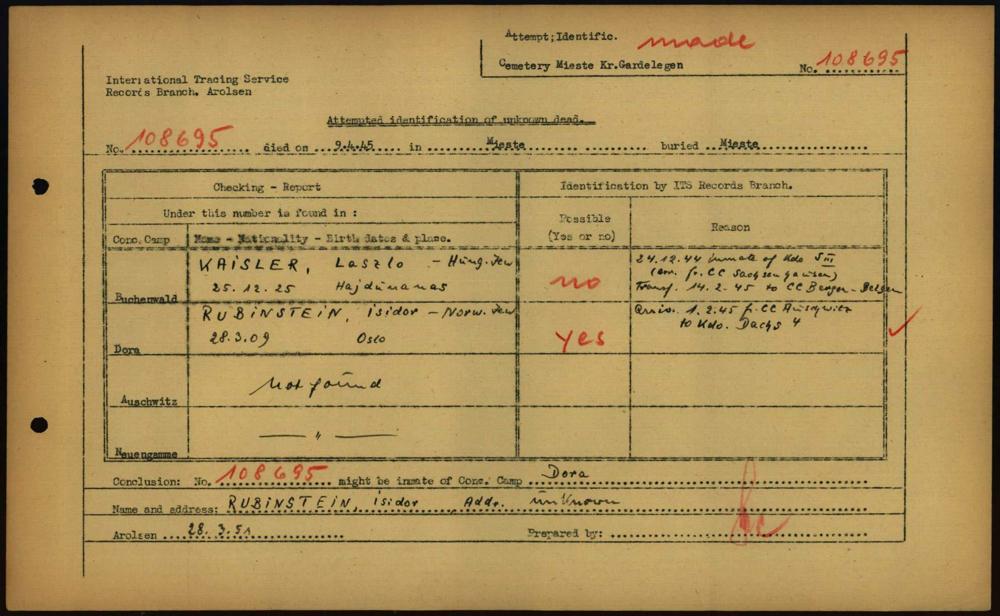 Attempt; Identific. made
Cemetery Mieste Kr.Gardelegen No. 108695
International Tracing Service
Records Branch. Arolsen
Attempted identification of unknown dead.
No. 108695 died on 9.4.45 in Mieste buried Mieste
Checking - Report Identification by ITS Records Branch.
Under this number is found in : Possible (Yes or no) Reason
Conc. Camp Name - Nationality - Birth dates & place.
Buchenwald KAISLER, Laszlo - Hung. Jew
25.12.25 Hajdunanas
no
24.12.44 inmate of Kdo S III
(arr. fr. CC Sachsenhausen)
Transf. 14.2.45 to CC Bergen-Belsen
Dora RUBINSTEIN, isidor - Norw. Jew
28.3.09 Oslo
yes
arriv. 1.2.45 fr. CC Auschwitz
to Kdo. Dachs 4
Auschwitz not found
Neuengamme — " —
Conclusion: No. 108695 might be inmate of Conc. Camp Dora
Name and address: RUBINSTEIN, isidor, Addr. unknown
Arolsen 28.3.51 Prepared by: